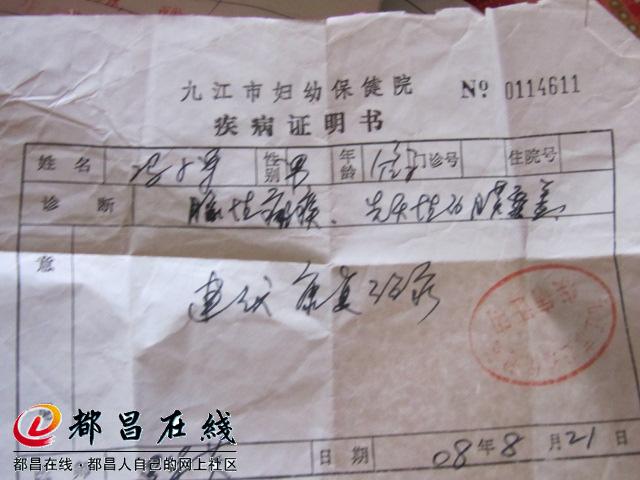 九江市妇幼保健院 № 0114611
疾病证明书
姓名 性别 男 年龄 门诊号 住院号
诊断 脑性瘫痪、先天性
意
建议 康复治疗
都昌在线
都昌在线·都昌人自己的网上社区
日期 08年8月21日